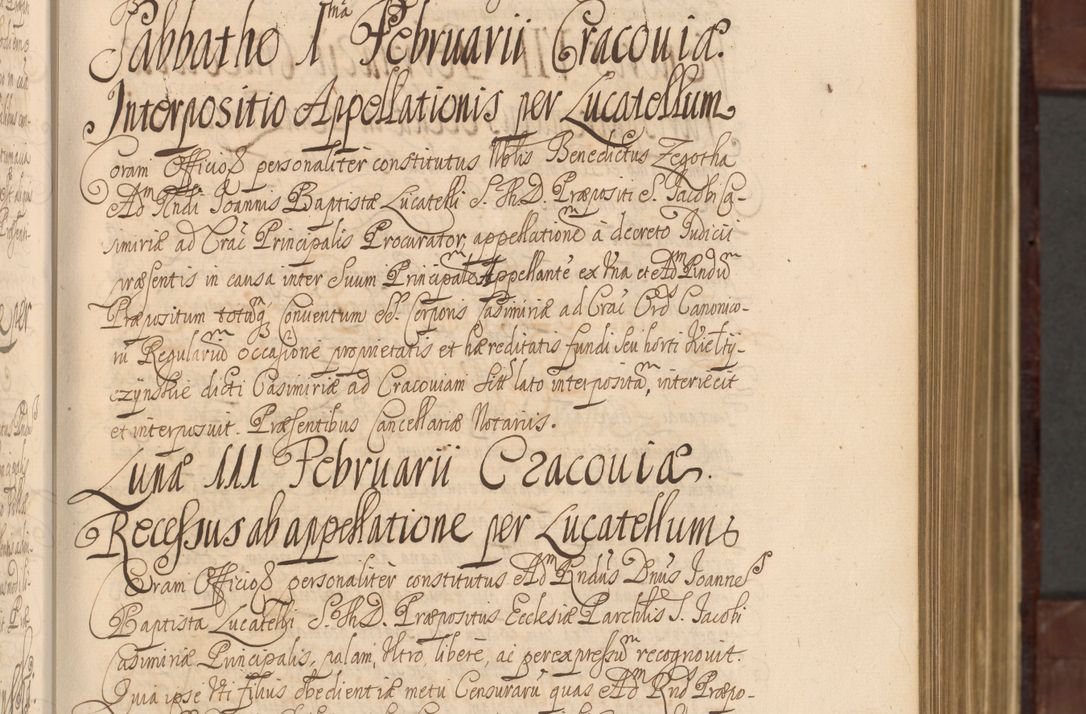 Sabbatho 1ma Februarii Cracouiæ.
Interpositio Appellationis per Lucatellum
Coram Officioss personaliter constitutus Nblis Benedictus Zegotha
Adm Rndi Joannis Baptistæ Lucatelli S. Th. D. Præpositi S. Jacobi Ca-
simiriæ ad Crac Principalis Procurator, appellationem à decreto Judicii
præsentis in causa inter suum Principalem Appellante ex Una et Adm Rndum
Præpositum totumq Conuentum SS. Corporis Casimiriæ ad Crac Ord Canonico-
ru Regularium occasione proprietatis et hæreditatis fundi seu horti Kielty-
czynskie dicti Casimiriæ ad Cracouiam lato interpositam, interiecit
et interposuit. Præsentibus Cancellariæ Notariis.
Lunæ III Februarii Cracouiæ.
Recessus ab appellatione per Lucatellum
Coram Officioss personaliter constitutus Adm Rndus Dnus Joannes
Baptista Lucatelli S. Th. D. Præpositus Ecclesiæ Parchlis S. Jacobi
Casimiriæ Principalis, palam, Utro, libere, ac per expressum recognouit.
Quia ipse Uti filius obedientiæ metu Censuraru quas Adm Rnd Præpo-